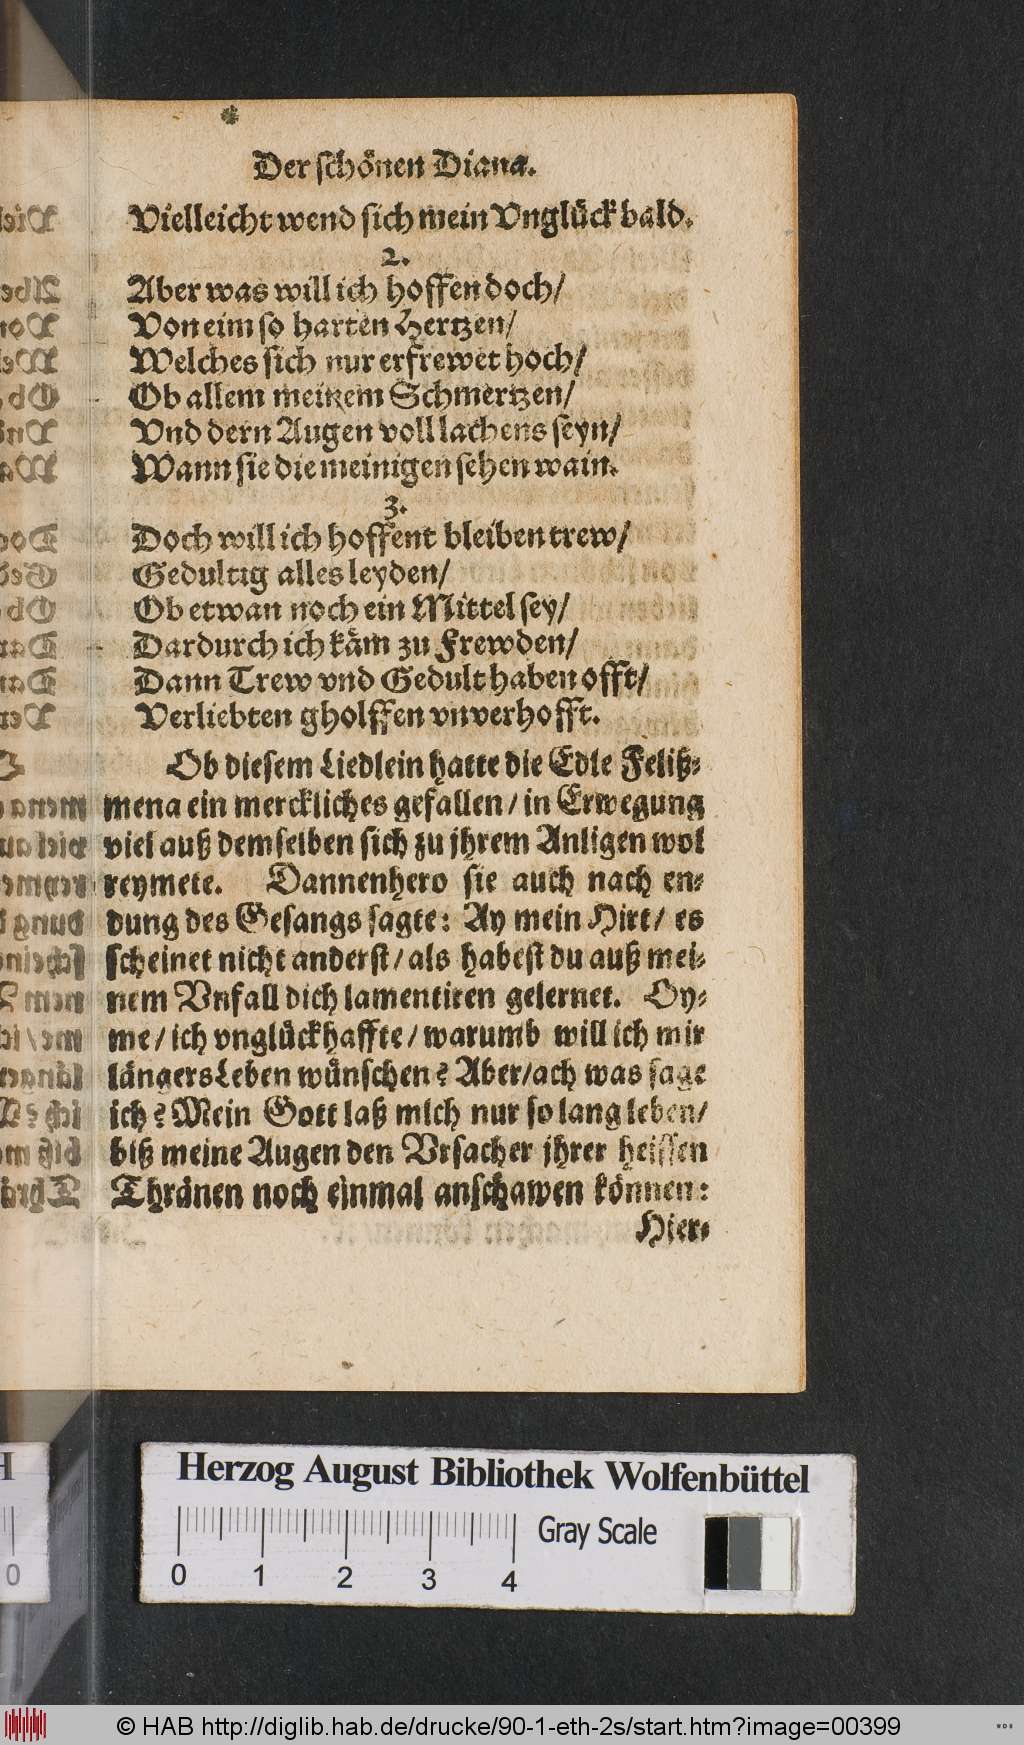 Der schönen Diana.
Vielleicht wend sich mein Vnglück bald.
2.
Aber was will ich hoffen doch/
Von eim so harten Hertzen/
Welches sich nur erfrewet hoch/
Ob allem meinem Schmertzen/
Vnd dern Augen voll lachens seyn/
Wann sie die meinigen sehen wain.
3.
Doch will ich hoffent bleiben trew/
Gedultig alles leyden/
Ob etwan noch ein Mittel sey/
Dardurch ich käm zu Frewden/
Dann Trew vnd Gedult haben offt/
Verliebten gholffen vnverhofft.
Ob diesem Liedlein hatte die Edle Feliß-
mena ein merckliches gefallen / in Erwegung
viel auß demselben sich zu jhrem Anligen wol
reymete. Dannenhero sie auch nach en-
dung des Gesangs sagte: Ay mein Hirt/ es
scheinet nicht anderst / als habest du auß mei-
nem Vnfall dich lamentiren gelernet. Oy-
me / ich vnglückhaffte / warumb will ich mir
längers Leben wünschen? Aber/ach was sage
ich? Mein Gott laß mich nur so lang leben/
biß meine Augen den Vrsacher jhrer heissen
Thränen noch einmal anschawen können:
Hier-
Herzog August Bibliothek Wolfenbüttel
Gray Scale
0 1 2 3 4
0
© HAB http://diglib.hab.de/drucke/90-1-eth-2s/start.htm?image=00399